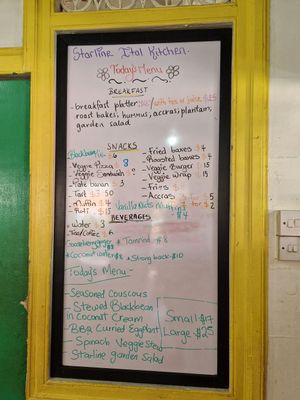 Starline Ital Kitchen.
Today's Menu
BREAKFAST
- breakfast platter: with tea or juice $25
roast bakes; hummus, accras; plantain;
garden salad
SNACKS
- Blackbean $6
- Veggie Pizza 8
- Veggie Sandwich
- Tate banan $ 3
- Tart $3.50
- Muffin $ 4
- Roti $15
- Fried baxes $ 4
- Roasted baxes $ 4
- Veggie Burger $ 15
- Veggie Wrap $ 15
- Fries $
- Accras $ for $ 2
Vanilla Nuts Muffin
$4
BEVERAGES
- Water $ 3
- Tea/Coffee $ 6
* Tamrind $8
* Coconut water $8 * Strong back $10
Today's Menu -
- Seasoned Couscous
- Stewed Blackbean
in Coconut Cream
- BBQ Curried Eggplant
- Spinach Veggie Stew
- Starline garden Salad
Small - $17
Large - $25